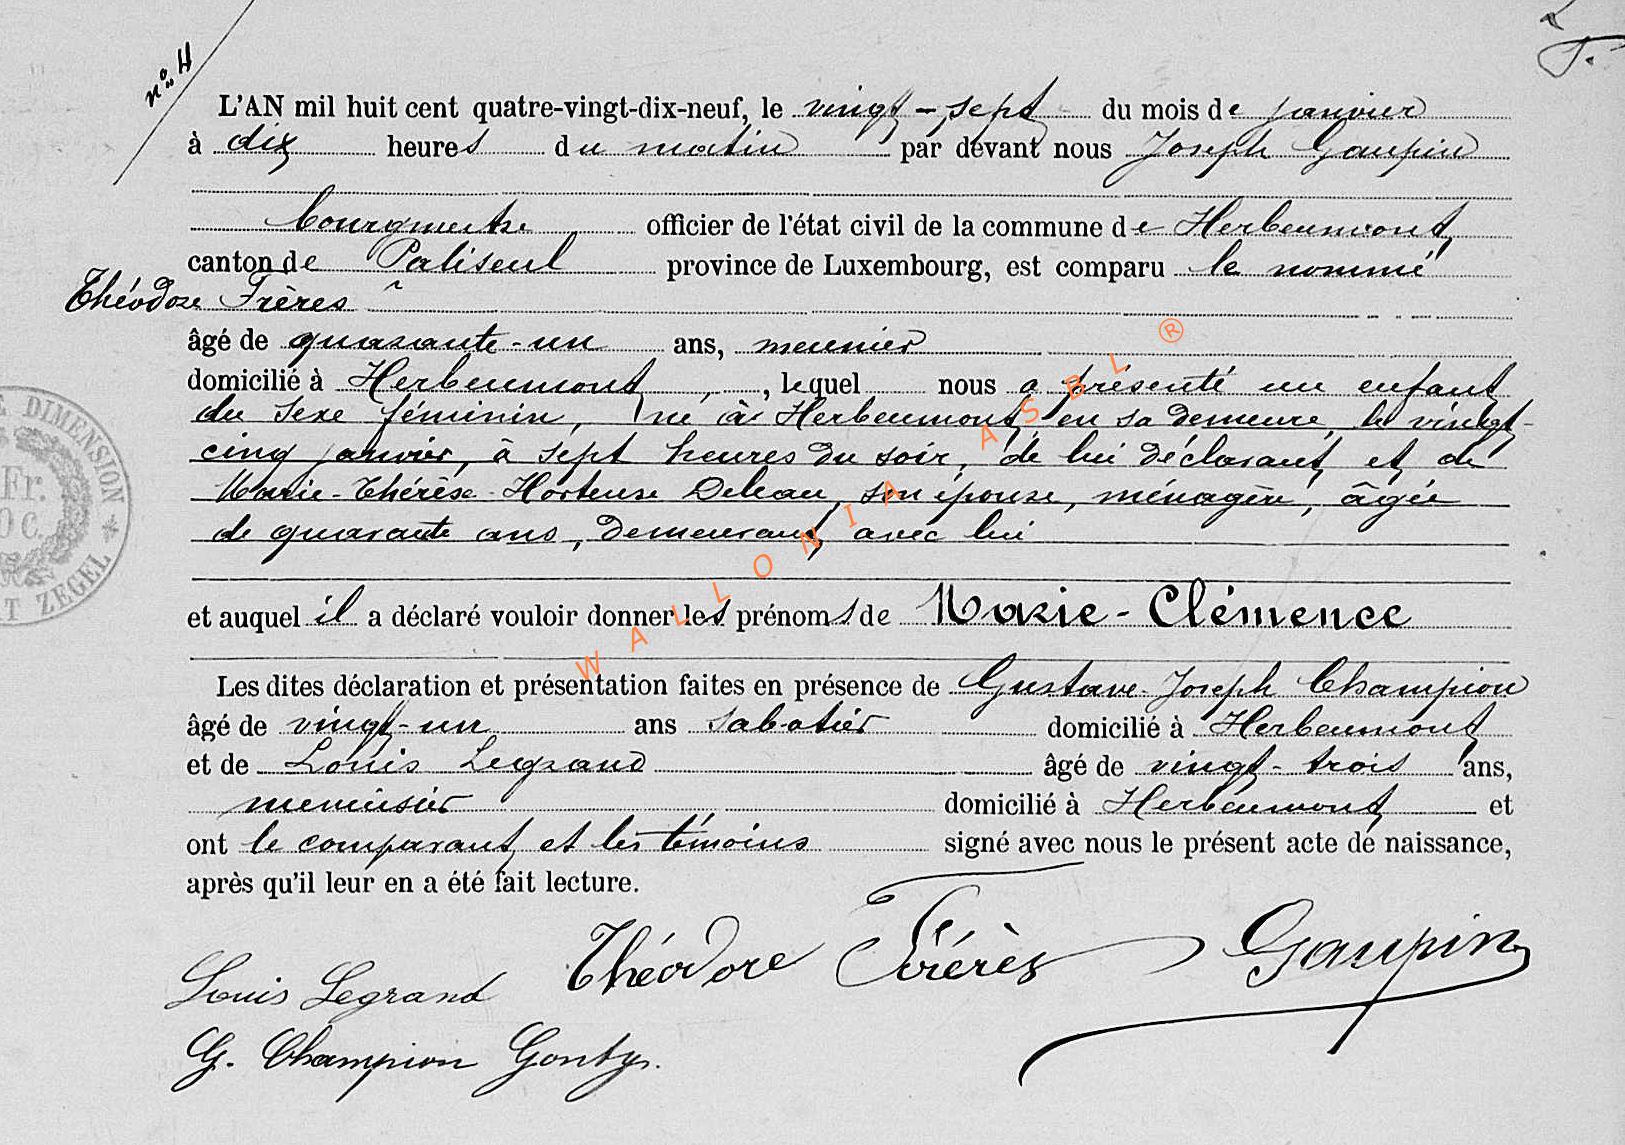 n° 4
L'AN mil huit cent quatre-vingt-dix-neuf, le vingt-sept du mois de janvier
à dix heures du matin par devant nous Joseph Gaupin
bourgmestre officier de l'état civil de la commune de Herbeumont,
canton de Paliseul province de Luxembourg, est comparu le nommé
Théodore Frères
âgé de quarante-un ans, meunier
domicilié à Herbeumont, lequel nous a présenté un enfant
du sexe féminin, né à Herbeumont, en sa demeure, le vingt-
cinq janvier, à sept heures du soir, de lui déclarant, et de
Marie-Thérèse-Hortense Deleau, son épouse, ménagère, âgée
de quarante ans, demeurant avec lui
et auquel il a déclaré vouloir donner les prénoms de Marie-Clémence
Les dites déclaration et présentation faites en présence de Gustave-Joseph Champion
âgé de vingt-un ans sabotier domicilié à Herbeumont
et de Louis Legrand âgé de vingt-trois ans,
menuisier domicilié à Herbeumont et
ont le comparant et les témoins signé avec nous le présent acte de naissance,
après qu'il leur en a été fait lecture.
Théodore Frérès Gaupin
Louis Legrand
G. Champion Gontyr.
DIMENSION
Fr.
C.
ZEGEL
WALLONIA ASBL ®